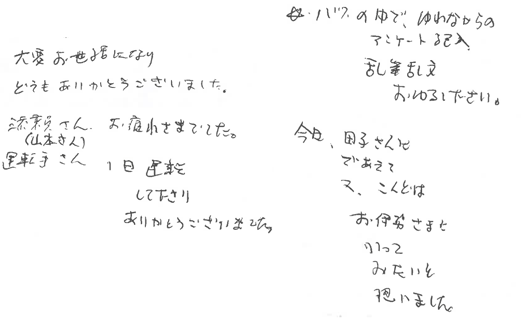 大変お世話になり
どうもありがとうございました。
添乗さん お疲れさまでした。
(山本さん)
運転手さん
1日運転
してくださり
ありがとうございました。
バスの中で、ゆれながらの
アンケート記入
乱筆乱文
おゆるしください。
今日、
であえて
こんどは
お伊勢さまに
行って
みたいと
思いました。